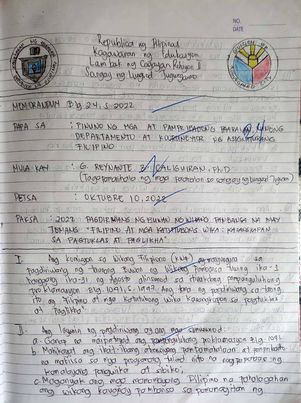 NO.
DATE
Republika ng Pilipinas
Kagawaran ng Edukasyon
Lambak ng Cagayan Rehiyon II
Sangay ng Lungsod Tuguegarao
MEMORANDUM Blg. 24, s. 2022
PARA SA : PINUNO NG MGA AT PAMPUBLIKONG PAARALAN
DEPARTAMENTO AT KOORDINEYTOR NG ASIGNATURANG
FILIPINO
MULA KAY : G. REYNANTE Z. CALIGUIRAN, PH.D
(Tagapamanihala ng mga paaralan sa sangay ng lungsod
PETSA : OKTUBRE 10, 2022
PAKSA : 2022 PAGDIRIWANG NG BUWAN NG WIKANG PAMBANSA NA MAY
TEMANG "FILIPINO AT MGA KATUTUBONG WIKA: KASANGKAPAN
SA PAGTUKLAS AT PAGLIKHA"
I. Ang komisyon sa Wikang Filipino (KWF) ay sa
pagdiriwang ng Buwang Wikang Pambansa tuwing ika-1
hanggang ika-31 ng Agosto alinsunod sa
blg. 1041, s. 1997. Ang tema ng pagdiriwang sa taong
ito ay Filipino at mga katutubong wika: Kasangkapan sa pagtuklas
at paglikha
II. Ang layunin ng pagdiriwang ay ang mga sumusunod:
a. Ganap na maipatupad ang pampanguluhang proklamasyon blg. 1041
b. Mahikayat ang iba't-ibang ahensyang pampamahalaan at pampribado
na makiisa sa mga programang ng
kamalayang pangwika at sibiko;
c. Maganyak ang mga mamamayang Pilipino na pahalagahan
ang wikang Pambansa sa pamamagitan ng